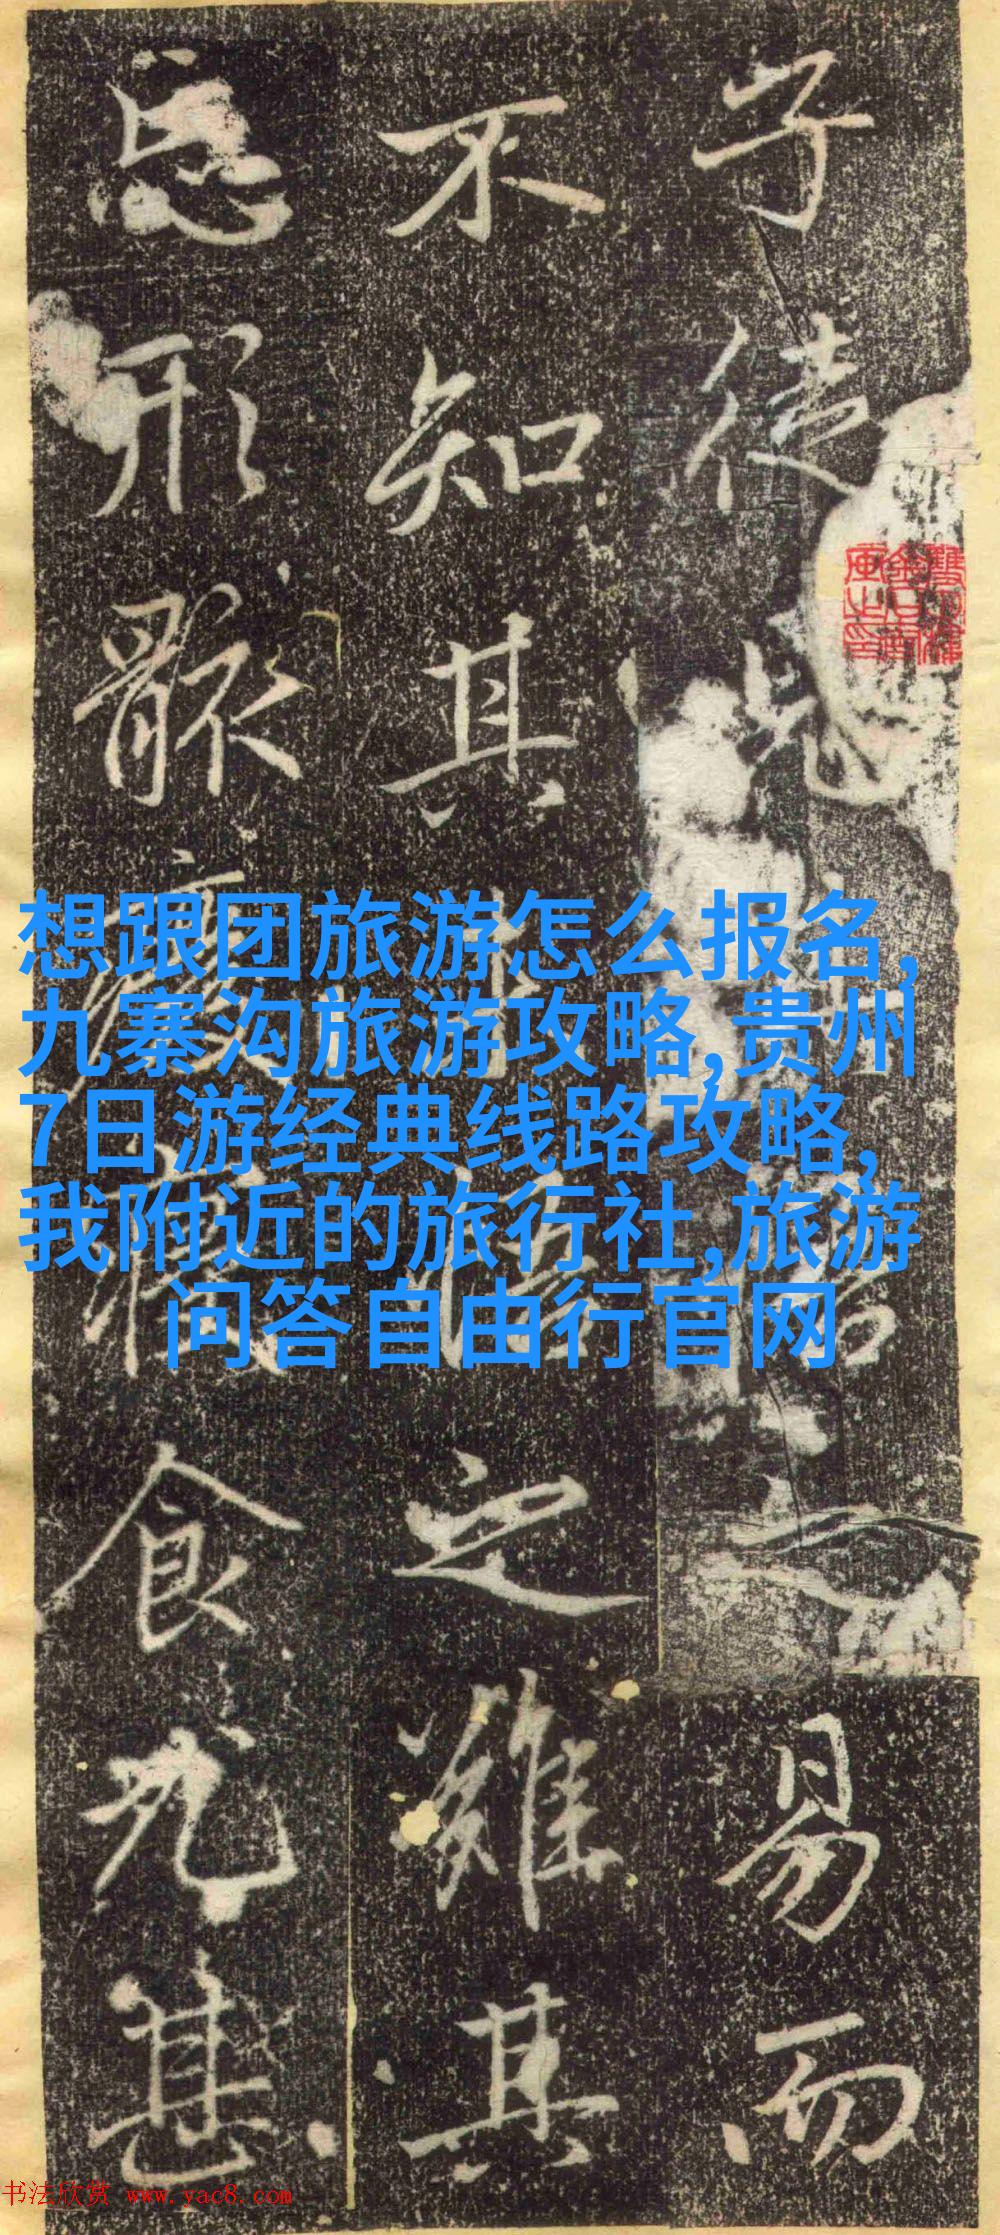 子徒見之易而
不知其之難其
忘形骸廢寢食尤甚
想跟团旅游怎么报名,
九寨沟旅游攻略,贵州
7日游经典线路攻略,
我附近的旅行社,旅游
问答自由行官网
书法欣赏 www.yac8.com